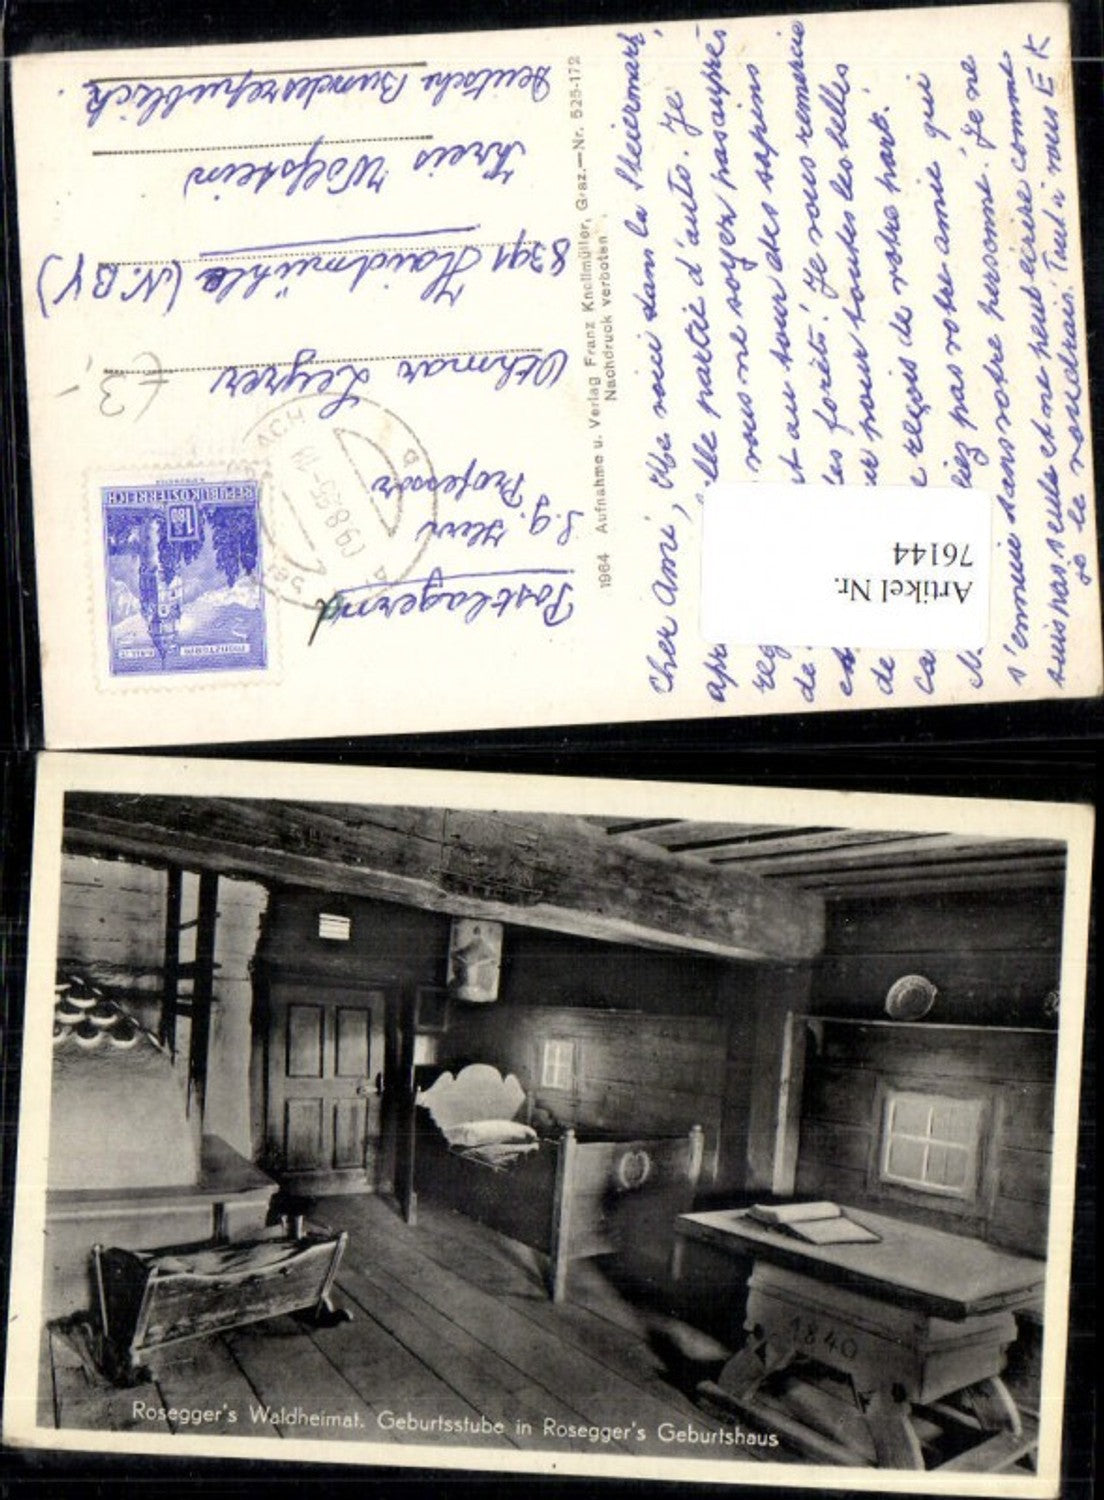 Cher Ami, Me voici dans la Steiermark,
après belle partie d'auto. Je
que vous ne soyez pas auprès
de et au tour des sapins
et les forêts! Je vous remercie
de pour toutes les belles
ca reçois de votre part.
N' liez pas votre amie qui
s'ennuie dans votre personne. Je ne
suis pas seule et ne peut écrire comme
je le voudrais. Tout à vous E K
Artikel Nr.
76144
1964 Aufnahme u. Verlag Franz Knollmüller, Graz.—Nr. 525-172
Nachdruck verboten
Postlagernd
S.g. Herrn
Professor
Othmar
8391 Haidmühle (N.BY)
Kreis Wolfstein
Deutsche Bundesrepublick.
REPUBLIK ÖSTERREICH
1.80
3,-
Rosegger's Waldheimat. Geburtsstube in Rosegger's Geburtshaus
1840